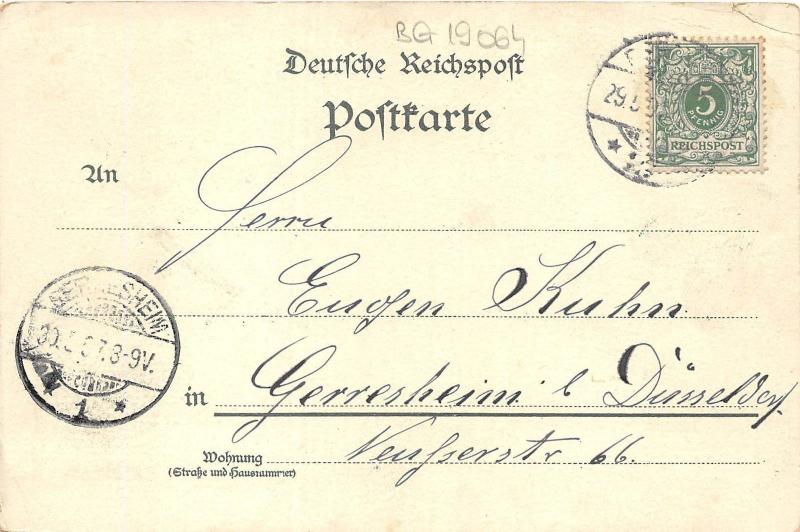 BG 19064
Deutsche Reichspost
Postkarte
5
PFENNIG
REICHSPOST
29.5
An
Herrn
Eugen Kuhn
in Gerresheim b Düsseldorf
Neusserstr 66.
Wohnung
(Straße und Hausnummer)
GERRESHEIM
30.5.97.8-9V.
1